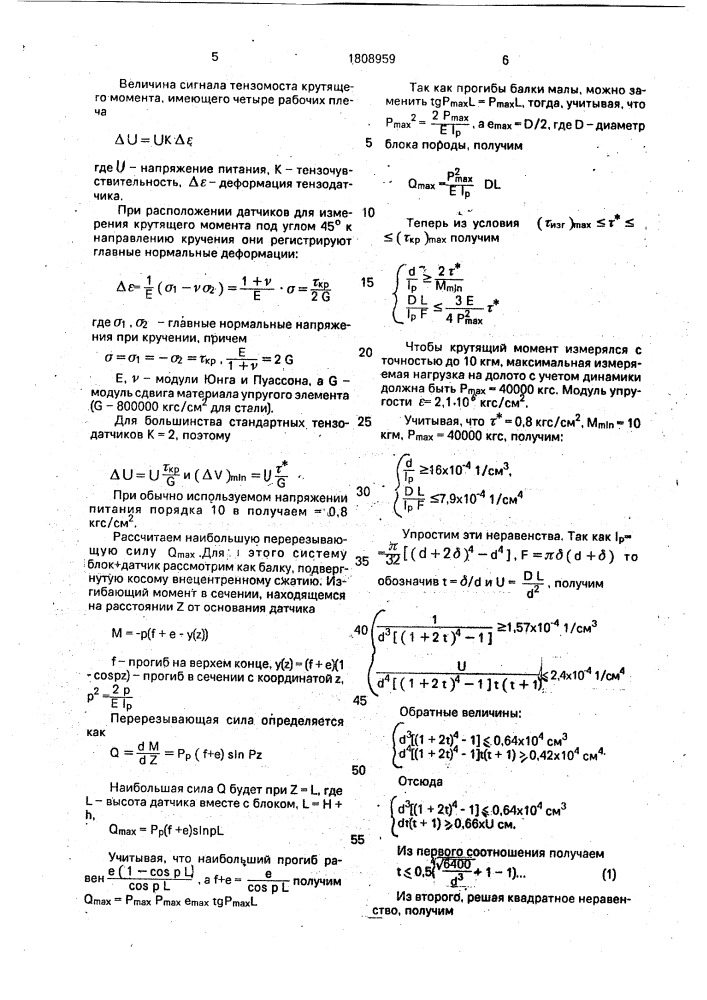 5
1808959
6
Величина сигнала тензомоста крутяще-
го момента, имеющего четыре рабочих пле-
ча
ΔU=UKΔε
где U – напряжение питания, K – тензочув-
ствительность, Δε – деформация тензодат-
чика.
При расположении датчиков для изме-
рения крутящего момента под углом 45° к
направлению кручения они регистрируют
главные нормальные деформации:
Δε=1/E (σ1 – νσ2)=(1+ν)/E · σ=τкр/2G
где σ1, σ2 – главные нормальные напряже-
ния при кручении, причем
σ=σ1=–σ2=τкр, E/(1+ν)=2G
E, ν – модули Юнга и Пуассона, а G –
модуль сдвига материала упругого элемента
(G – 800000 кгс/см² для стали).
Для большинства стандартных тензо-
датчиков K = 2, поэтому
ΔU=U τкр/G и (ΔV)min=U τ*/G
При обычно используемом напряжении
питания порядка 10 в получаем = 0,8
кгс/см².
Рассчитаем наибольшую перерезываю-
щую силу Qmax. Для этого систему
блок+датчик рассмотрим как балку, подверг-
нутую косому внецентренному сжатию. Из-
гибающий момент в сечении, находящемся
на расстоянии Z от основания датчика
M=-p(f + e - y(z))
f – прогиб на верхем конце, y(z) = (f + e)(1
- cospz) – прогиб в сечении с координатой z,
p²=2p/(E Ip)
Перерезывающая сила определяется
как
Q=dM/dZ=Pp(f+e) sin Pz
Наибольшая сила Q будет при Z = L, где
L – высота датчика вместе с блоком, L = H +
h,
Qmax = Pp(f+e)sinpL
Учитывая, что наибольший прогиб ра-
вен e(1 – cos pL)/cos pL, а f+e=e/cos pL получим
Qmax = Pmax Pmax emax tgPmaxL
Так как прогибы балки малы, можно за-
менить tgPmaxL = PmaxL, тогда, учитывая, что
Pmax²=2 Pmax/(E Ip), а emax = D/2, где D – диаметр
5 блока породы, получим
Qmax=P²max/(E Ip) DL
10
Теперь из условия (τизг)max ≤ τ* ≤
≤ (τкр)max получим
15
{ d/Ip ≥ 2τ*/Mmin
DL/(Ip F) ≤ 3E/(4P²max) τ*
Чтобы крутящий момент измерялся с
20 точностью до 10 кгм, максимальная измеря-
емая нагрузка на долото с учетом динамики
должна быть Pmax = 40000 кгс. Модуль упру-
гости ε=2,1·10⁶ кгс/см².
25 Учитывая, что τ* = 0,8 кгс/см², Mmin = 10
кгм, Pmax = 40000 кгс, получим:
{ d/Ip ≥16x10⁻⁴ 1/см³,
30
DL/(Ip F) ≤7,9x10⁻⁴ 1/см⁴
Упростим эти неравенства. Так как Ip=
35 =π/32 [(d+2δ)⁴–d⁴], F=πδ(d+δ) то
обозначив t=δ/d и U = DL/d², получим
40
{ 1/(d³[(1+2t)⁴–1]) ≥1,57x10⁻⁴ 1/см³
U/(d⁴[(1+2t)⁴–1]t(t+1)) ≤2,4x10⁻⁴ 1/см⁴
45
Обратные величины:
{ d³[(1 + 2t)⁴ - 1] ≤ 0,64x10⁴ см³
d⁴[(1 + 2t)⁴ - 1]t(t + 1) ≥ 0,42x10⁴ см⁴.
50
Отсюда
{ d³[(1 + 2t)⁴ - 1] ≤ 0,64x10⁴ см³
dt(t + 1) ≥ 0,66xU см.
55
Из первого соотношения получаем
t ≤ 0,5(⁴√6400/d³ + 1 - 1)... (1)
Из второго, решая квадратное неравен-
ство, получим